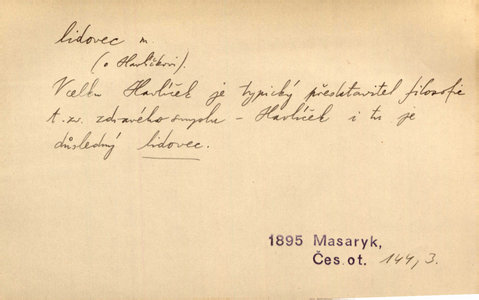 lidovec m.
(o Havlíčkovi).
Vcelku Havlíček je typický představitel filosofie
t. zv. zdravého smyslu – Havlíček i tu je
důsledný lidovec.
1895 Masaryk,
Čes. ot. 144, 3.